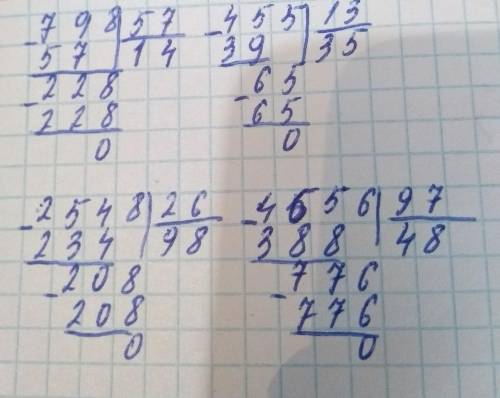 -798|57
57 14
-228
228
0
-455|13
39 35
-65
65
0
-2548|26
234 98
-208
208
0
-4656|97
388 48
-776
776
0